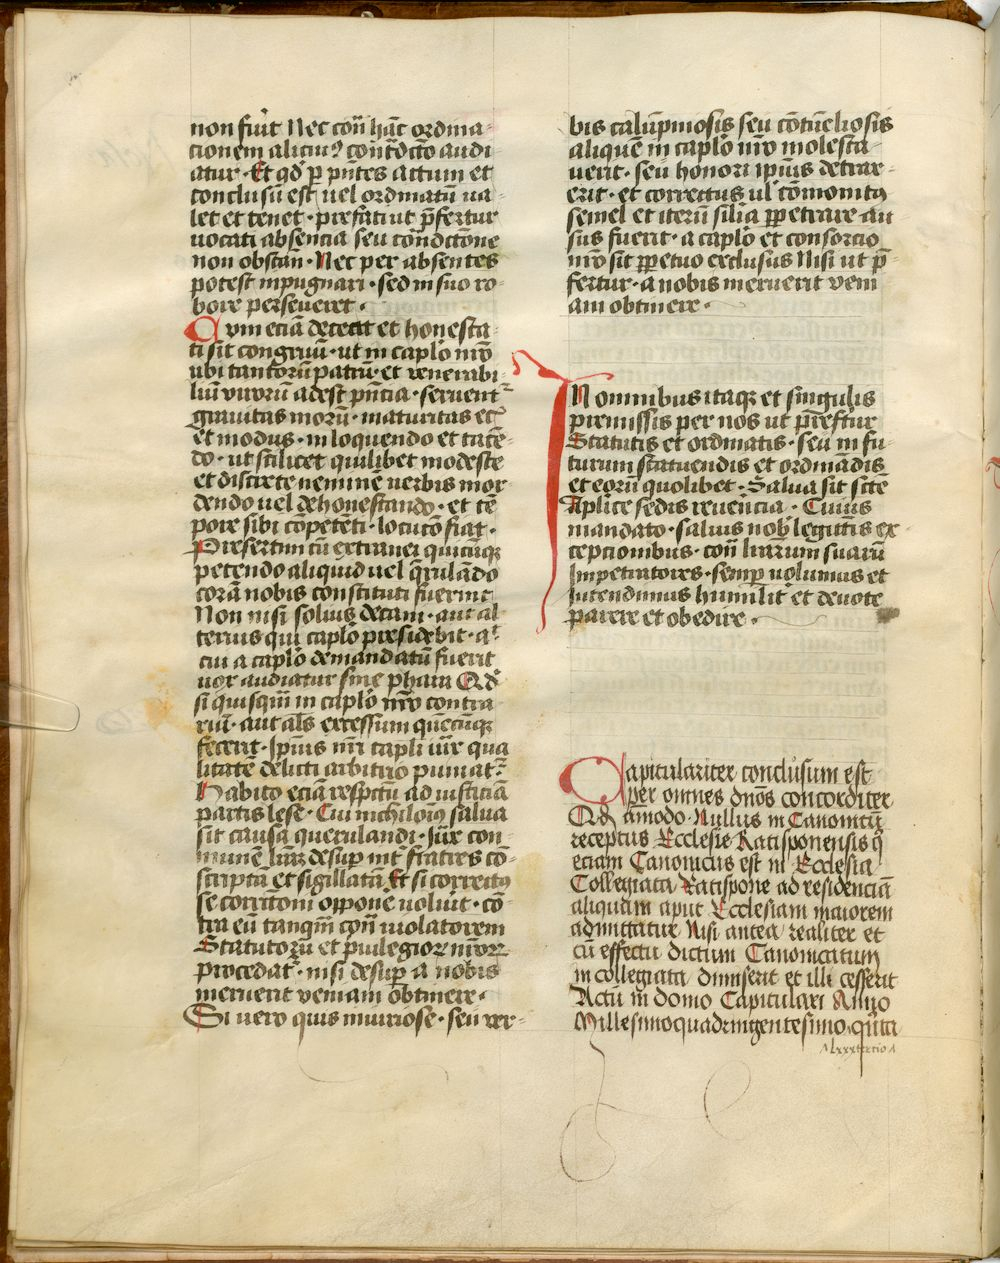 non fiu̅t Nec con̅ ha̅c ordina-
cionem alicuiꝰ con̅tdc̅to audi-
atur · Et qd̕ ꝑ pn̅tes actum et
conclusu̅ est uel ordinatu̅ ua-
let et tenet · prefati ut p̅fertur
vocati absencia seu co̅ndicc̅one
non obstan̅ · Nec per absentes
potest inpugnari · sed in suo ro-
bore perseueret ·
Cum ecia̅ deceat et honesta-
ti sit congruu̅ · ut in caplo̅ nr̅o
ubi tantoru̅ patru̅ · et venerabi-
liu̅ viroru̅ adest pn̅cia · seruent̕
grauitas moru̅ · maturitas et
et modus · in loquendo et tace̅-
do · ut scilicet quilibet modeste
et discrete nemine̅ verbis mor-
dendo uel dehonestando · et te̅-
pore sibi co̅pete̅ti · locuto̅ fiat ·
Presertim cu̅ extranei quicu̅qꝫ
petendo aliquid uel q̅rula̅do
cora̅ nobis constituti fuerint
Non nisi solius decani · aut al-
terius qui caplo̅ presidebit · a̕
cui a caplo̅ demandatu̅ fuerit
uox audiatur sine phara Qd̕
si quisqua̅ in caplo̅ nr̅o contra-
riu̅ · aut als̅ excessum quecu̅qꝫ
fecerit · Ipsius nr̅i capli iux̅ qua-
litate̅ delicti arbitrio puniat̕
Habito ecia̅ respc̅tu ad iusticia̅
partis lese · Cui nichilomi̅ꝰ salua
sit causa querulandi · Jux̅ con-
mune̅ lr̅am desuꝑ int̕ fratres co̅-
scripta̅ et sigillata̅ Et si correctꝰ
se corrito̅ni oppone̅ uoluit · co̅-
tra eu̅ tanqua̅ con̅ uiolatorem
Statutoru̅ et priuilegioꝝ nr̅oꝝ
procedat̕ · nisi desuꝑ a nobis
meruerit veniam obtinere ·
Si vero quis iniuriose · seu ver-
bis calu̅pniosis seu co̅tu̅eliosis
alique̅ in caplo̅ nr̅o molesta-
uerit · seu honori ipsius detrax-
erit · et correctus ul̕ co̅monitꝰ
semel et iteru̅ si̅lia ꝑpetrare au-
sus fuerit · a caplo̅ et consorcio
nr̅o sit ꝑpetuo exclusus Nisi ut p̅-
fertur · a nobis meruerit veni-
am obtinere ·
IN omnibus itaqꝫ et singulis
premissis per nos ut prefertur
Statutis et ordinatis · seu in fu-
turum statuendis et ordina̅dis
et eoru̅ quolibet · Salua sit sc̅te
Aplice sedis reuencia · Cuius
mandato · saluis nob̅ legitti̅s ex-
cepcionibus · con̅ lr̅arum suaru̅
Impetratores · semꝑ uolumus et
Intendimus humilit̕ et deuote
parere et obedire ·
Capitulariter conclusum est
per omnes dn̅os concorditer
Qd̕ a̅modo · Nullus in Canonicu̅
receptus Ecclesie Ratisponensis q̅
eciam Canonicus est in Ecclesia
Collegiata Ratispone ad residencia̅
aliquam aput Ecclesiam maiorem
admittatur Nisi antea realiter et
cu̅ effectu dictum Canonicatum
in collegiata dimiserit et illi cesserit
Actu̅ in domo Capitulari Anno
Millesimoquadringentesimo qui̅ta
^lxxxtercio^